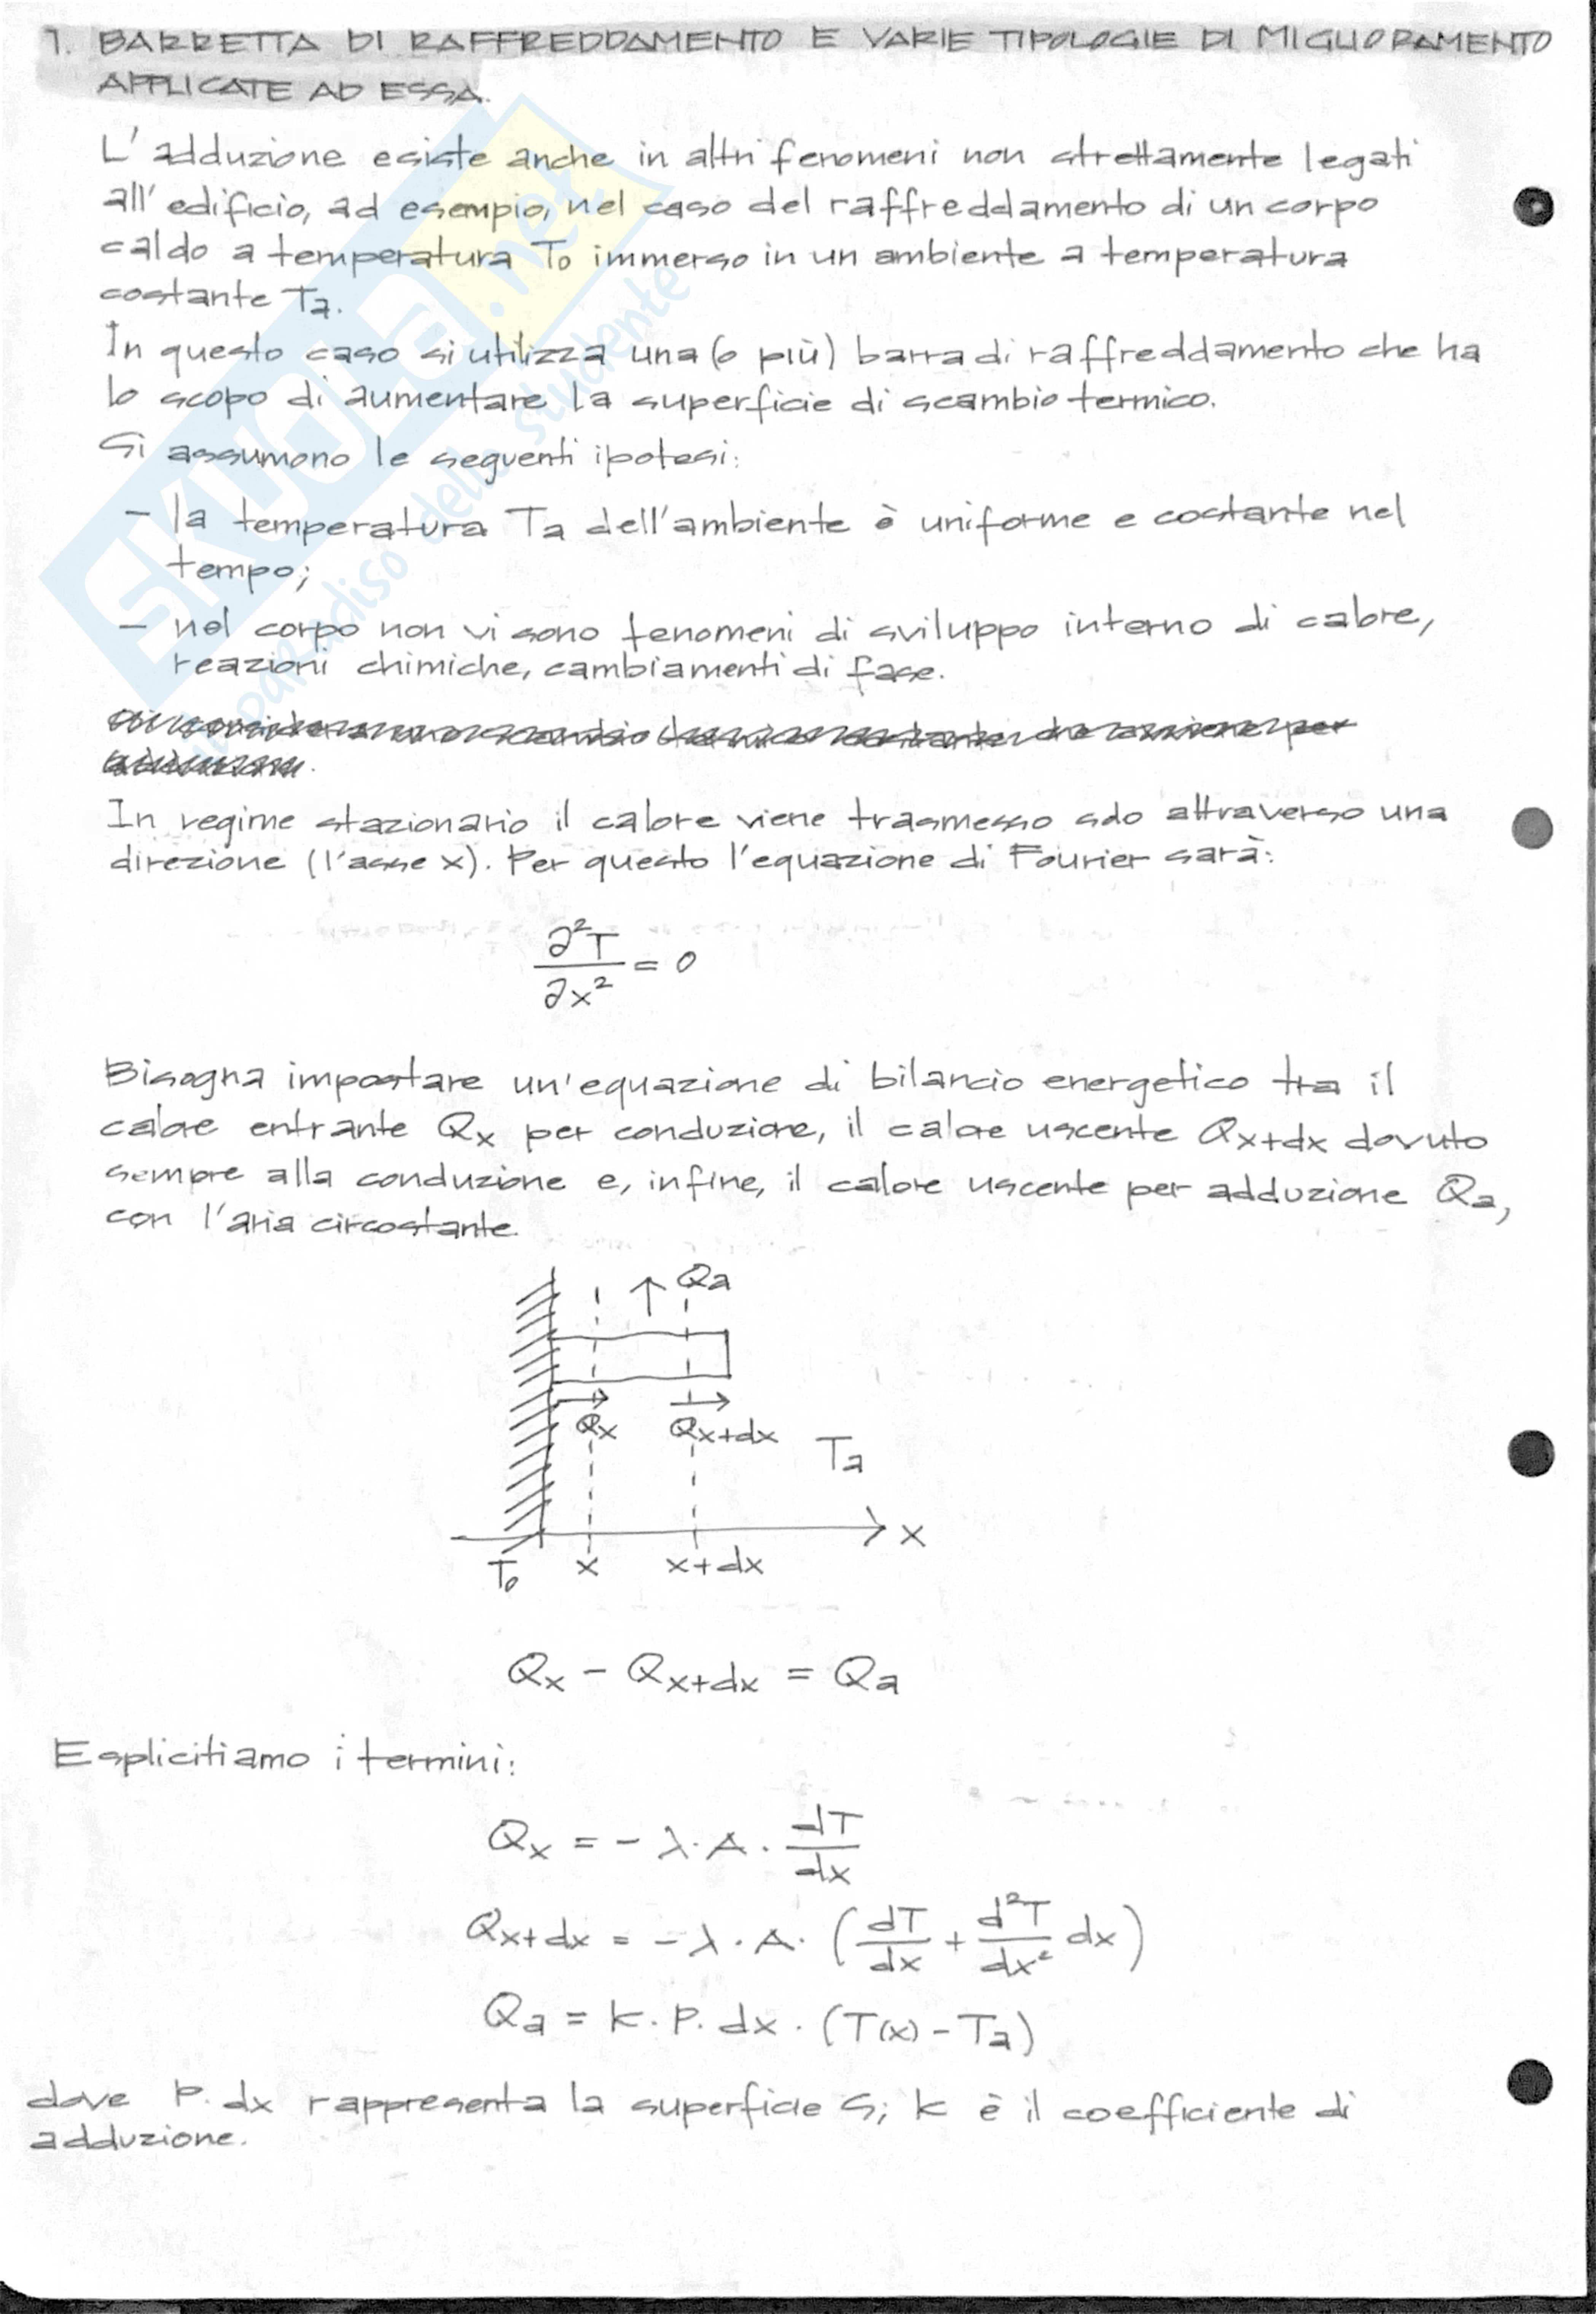 1. BARRETTA DI RAFFREDDAMENTO E VARIE TIPOLOGIE DI MIGLIORAMENTO
APPLICATE AD ESSA.
L'adduzione esiste anche in altri fenomeni non strettamente legati
all'edificio, ad esempio, nel caso del raffreddamento di un corpo
caldo a temperatura T₀ immerso in un ambiente a temperatura
costante Ta.
In questo caso si utilizza una (o più) barra di raffreddamento che ha
lo scopo di aumentare la superficie di scambio termico.
Si assumono le seguenti ipotesi:
- la temperatura Ta dell'ambiente è uniforme e costante nel
tempo;
- nel corpo non vi sono fenomeni di sviluppo interno di calore,
reazioni chimiche, cambiamenti di fase.
In regime stazionario il calore viene trasmesso solo attraverso una
direzione (l'asse x). Per questo l'equazione di Fourier sarà:
∂²T/∂x² = 0
Bisogna impostare un'equazione di bilancio energetico tra il
calore entrante Qx per conduzione, il calore uscente Qx+dx dovuto
sempre alla conduzione e, infine, il calore uscente per adduzione Qa,
con l'aria circostante.
Qa
Qx Qx+dx Ta
x
T₀ x x+dx
Qx - Qx+dx = Qa
Esplicitiamo i termini:
Qx = - λ · A · dT/dx
Qx+dx = - λ · A · (dT/dx + d²T/dx² dx)
Qa = k · P · dx · (T(x) - Ta)
dove P · dx rappresenta la superficie S; k è il coefficiente di
adduzione.
SKUOLA.net
il paradiso dello studente